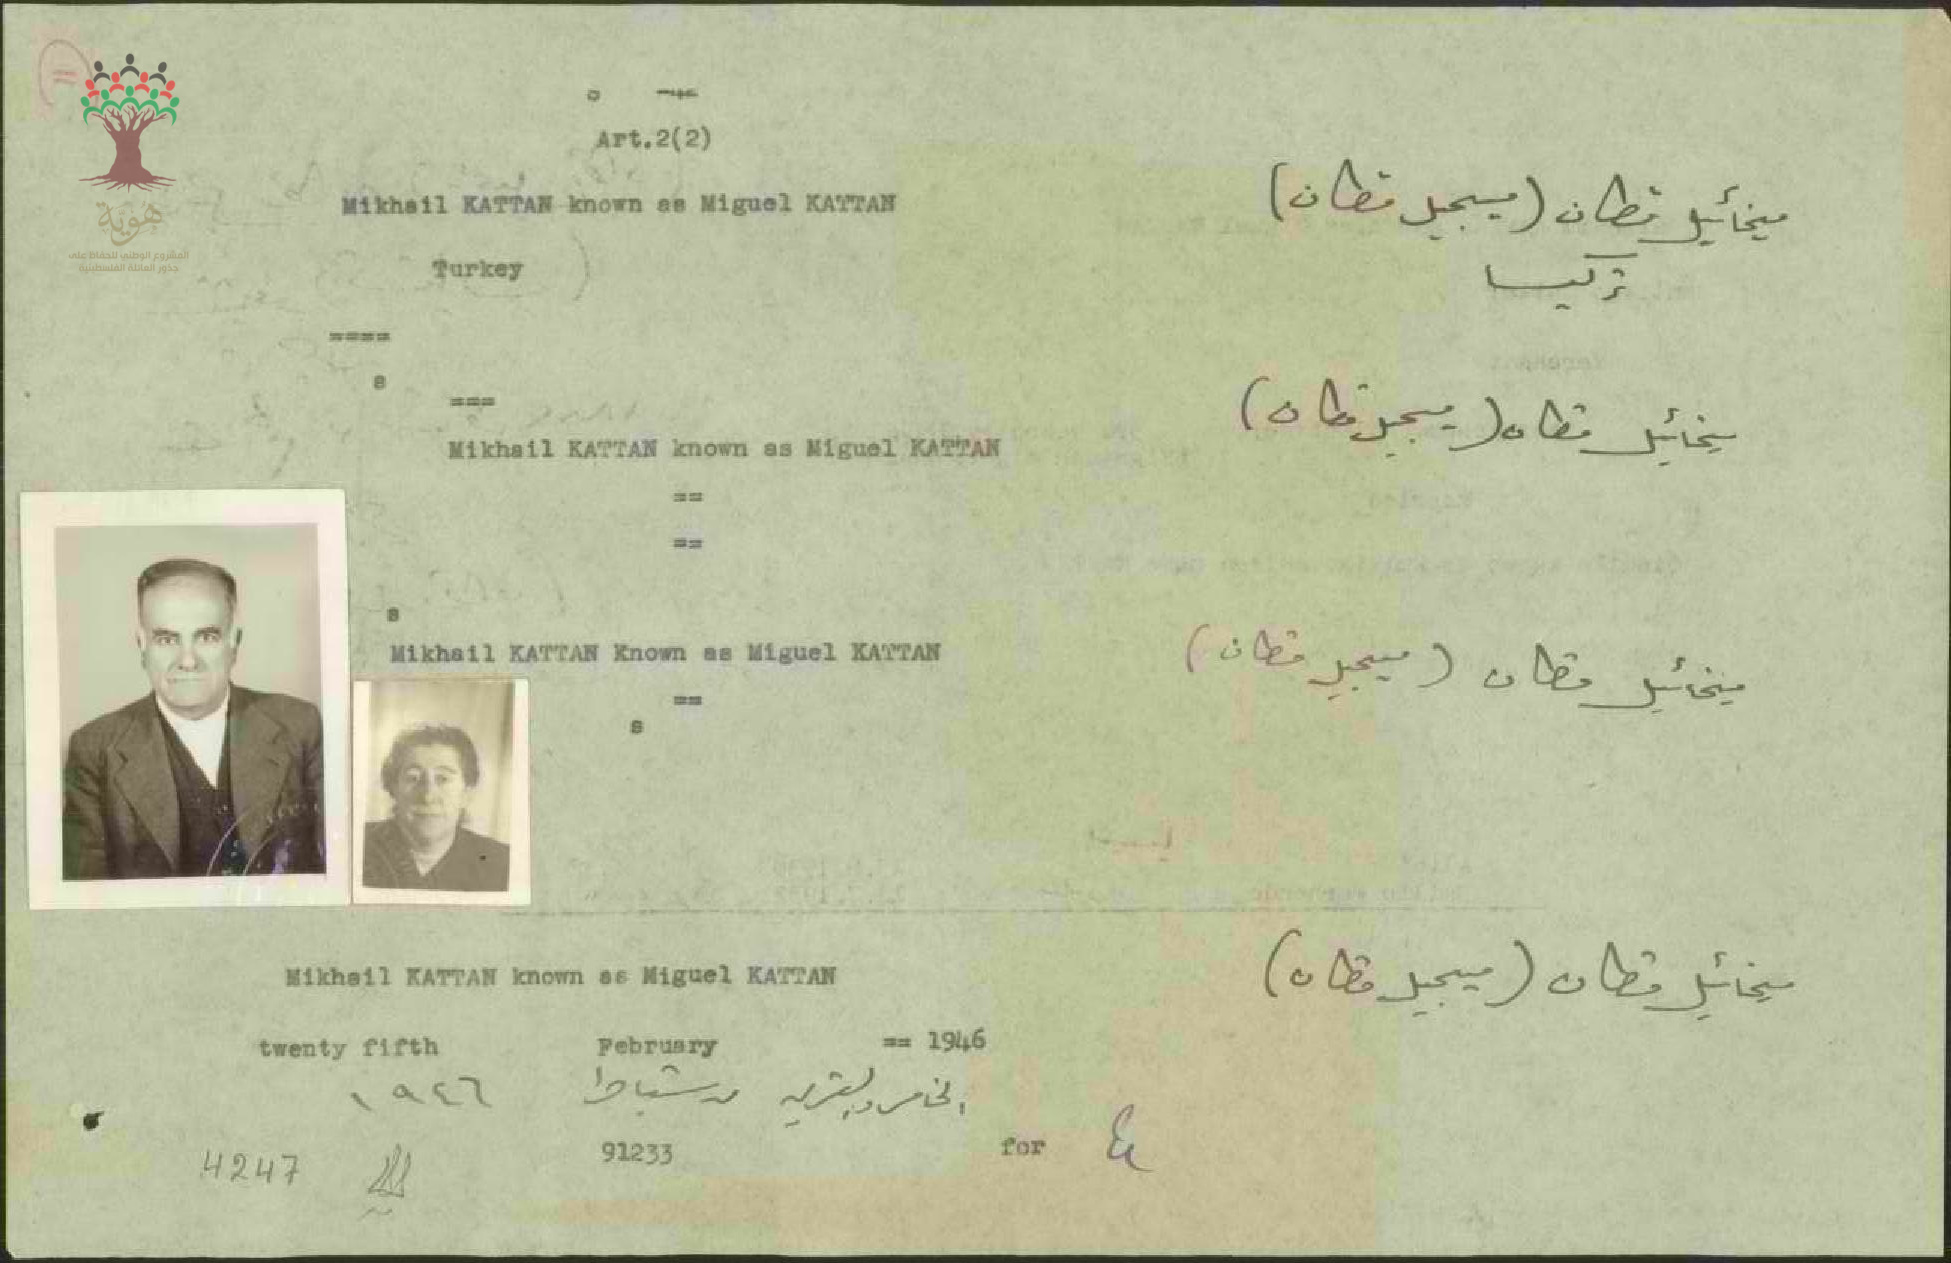 هوية
المشروع الوطني للحفاظ على
جذور العائلة الفلسطينية
Art.2(2)
Mikhail KATTAN known as Miguel KATTAN
ميخائيل قطان (ميجيل قطان)
Turkey
تركيا
====
s
===
Mikhail KATTAN known as Miguel KATTAN
ميخائيل قطان (ميجيل قطان)
==
==
s
Mikhail KATTAN Known as Miguel KATTAN
ميخائيل قطان (ميجيل قطان)
==
s
Mikhail KATTAN known as Miguel KATTAN
ميخائيل قطان (ميجيل قطان)
twenty fifth February == 1946
الخامس والعشرين من شباط ١٩٤٦
91233 for
4247